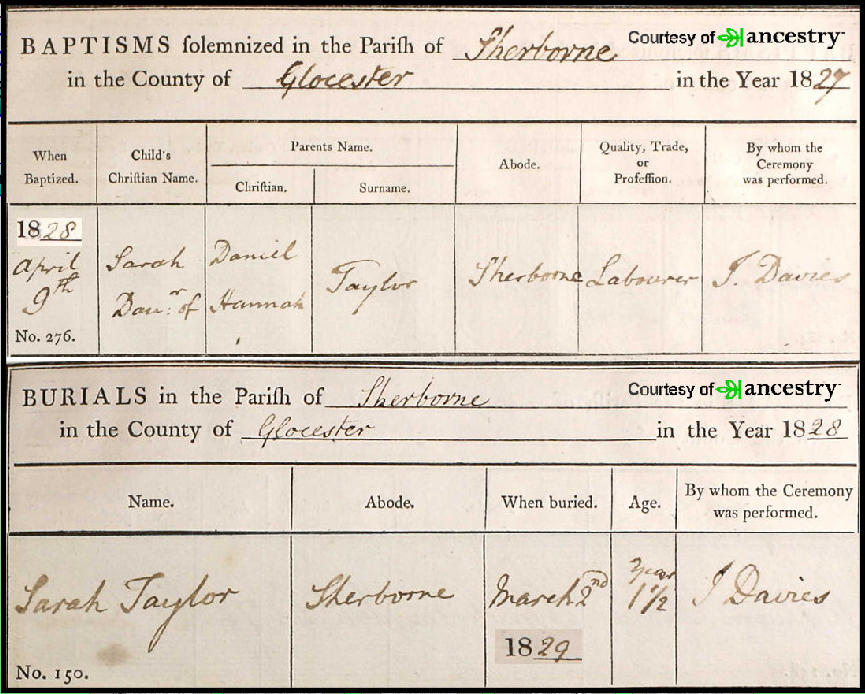 BAPTISMS solemnized in the Parish of Sherborne Courtesy of ancestry
in the County of Glocester in the Year 1827
When Baptized.
Child's Christian Name.
Parents Name.
Christian.
Surname.
Abode.
Quality, Trade, or Profession.
By whom the Ceremony was performed.
1828
April
9th
No. 276.
Sarah
Daur. of
Daniel
Hannah
Taylor
Sherborne
Labourer
J. Davies
BURIALS in the Parish of Sherborne Courtesy of ancestry
in the County of Glocester in the Year 1828
Name.
Abode.
When buried.
Age.
By whom the Ceremony was performed.
Sarah Taylor
No. 150.
Sherborne
March 2nd
1829
Year
1 1/2
J Davies